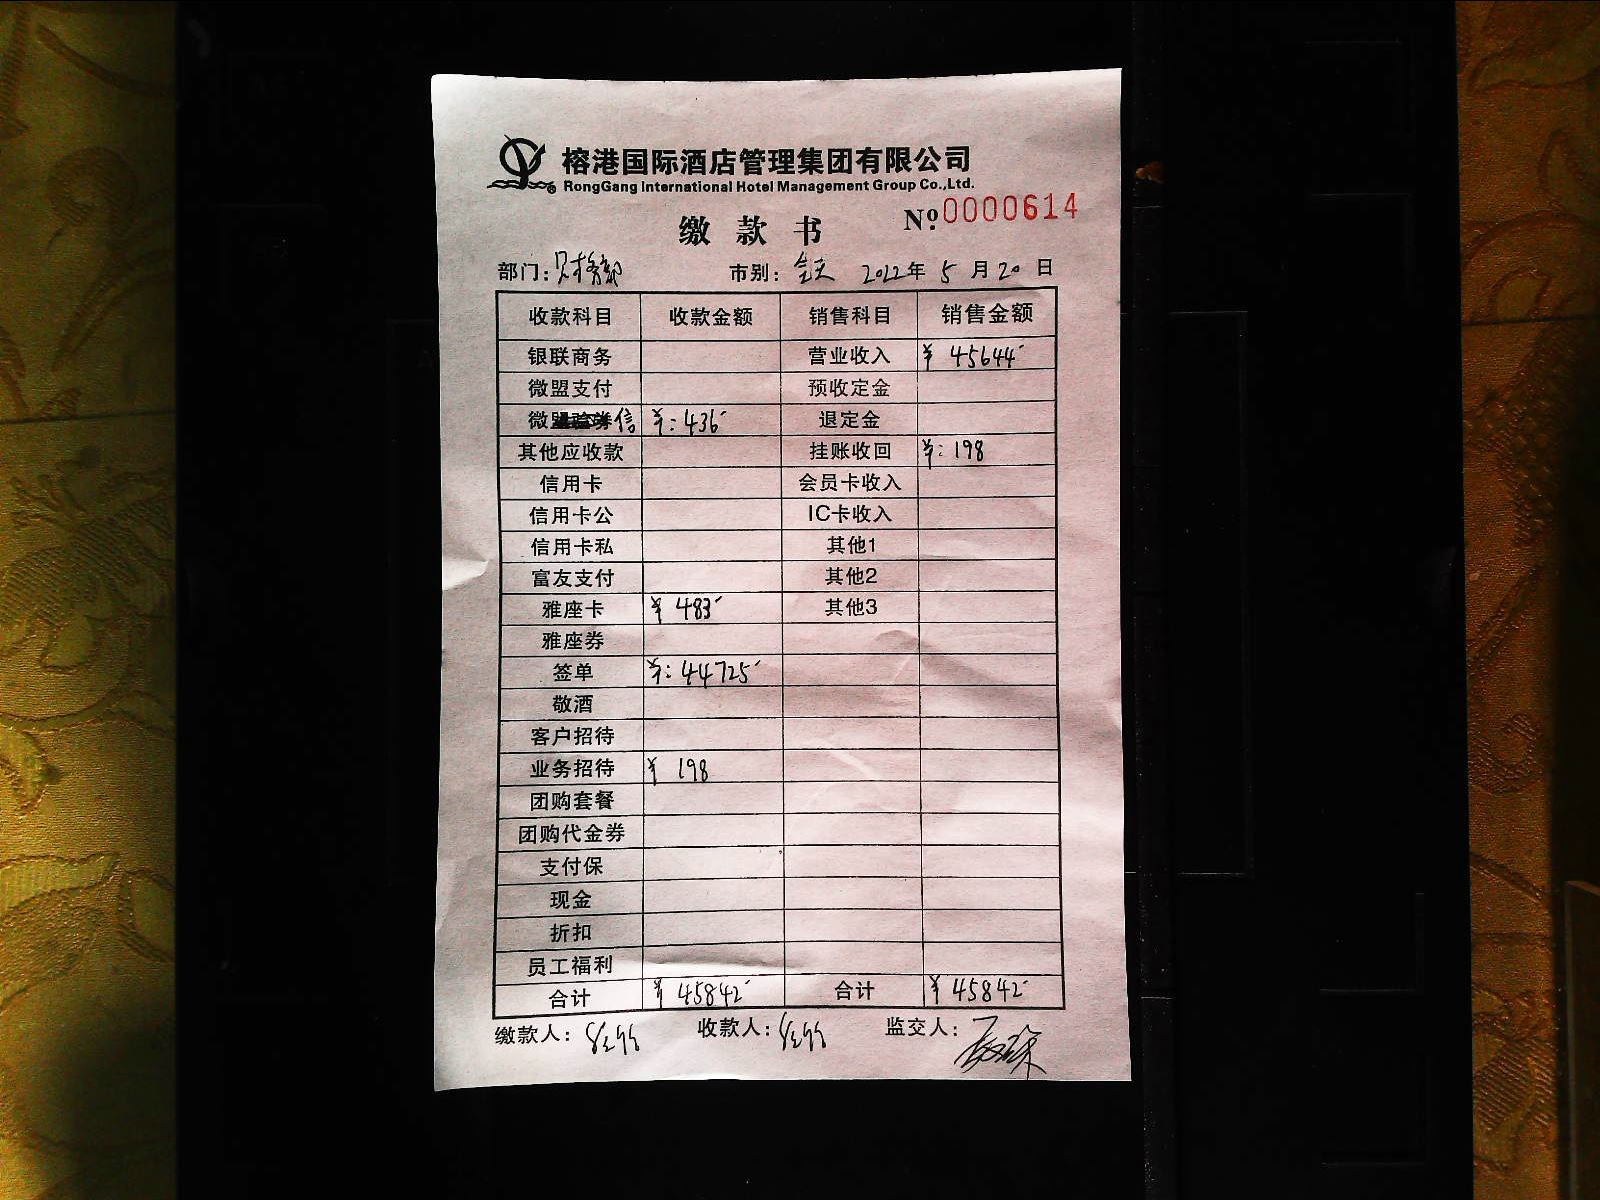 榕港国际酒店管理集团有限公司
RongGang International Hotel Management Group Co.,Ltd.
缴款书 №0000614
部门：财务部 市别：全天 2022年5月20日
收款科目 收款金额 销售科目 销售金额
银联商务 营业收入 ¥ 45644
微盟支付 预收定金
微信 ¥：436 退定金
其他应收款 挂账收回 ¥：198
信用卡 会员卡收入
信用卡公 IC卡收入
信用卡私 其他1
富友支付 其他2
雅座卡 ¥ 483 其他3
雅座券
签单 ¥：44725
敬酒
客户招待
业务招待 ¥ 198
团购套餐
团购代金券
支付保
现金
折扣
员工福利
合计 ¥ 45842 合计 ¥ 45842
缴款人： 收款人： 监交人：